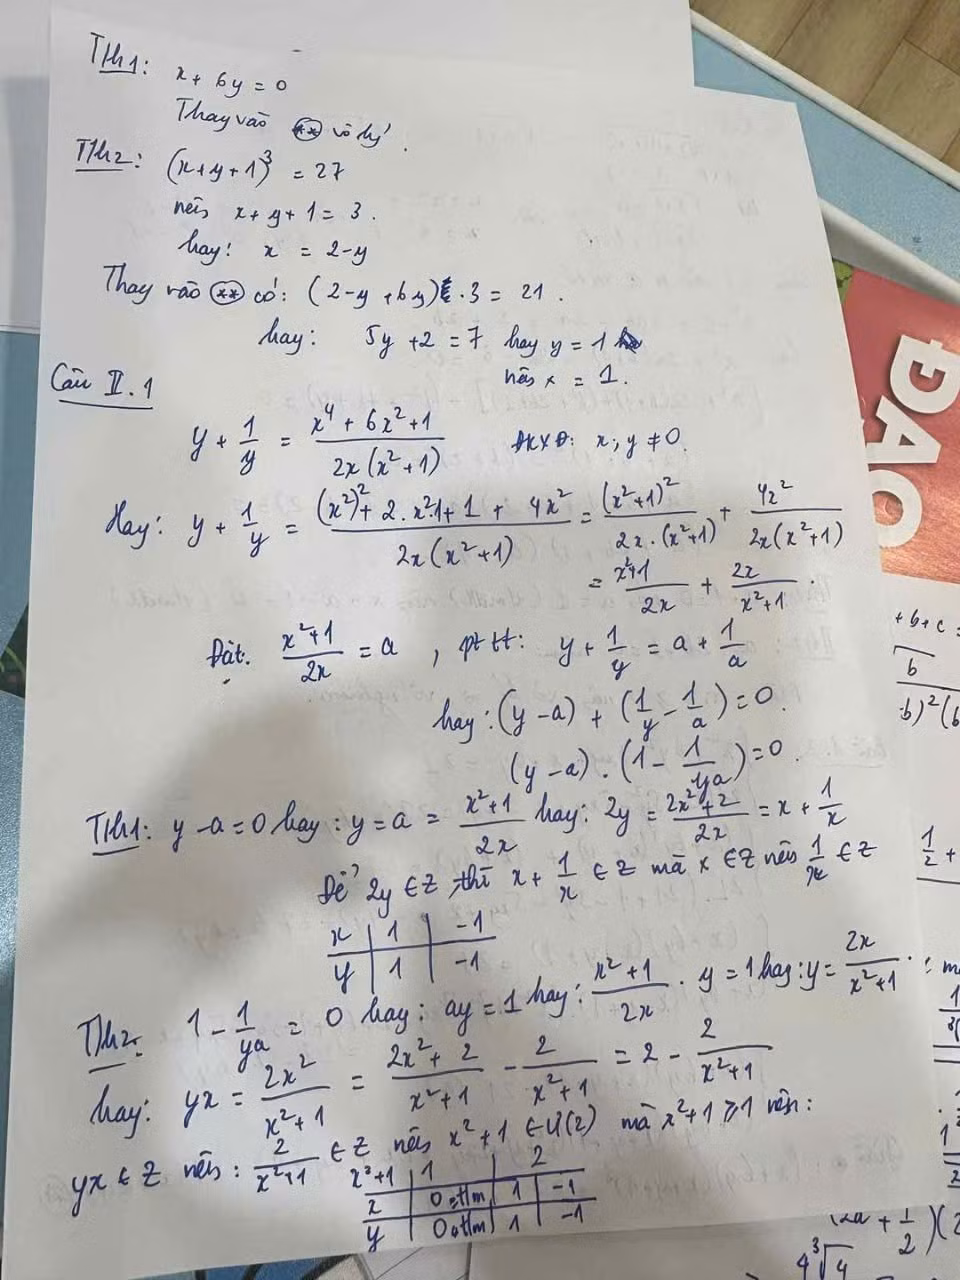 Th1: x + 6y = 0
Thay vào (**) vô lý.
Th2: (x+y+1)³ = 27
nên x + y + 1 = 3.
hay: x = 2-y
Thay vào (**) có: (2-y+6y) . 3 = 21.
hay: 5y + 2 = 7 hay y = 1
nên x = 1.
Câu II.1
y + 1/y = (x⁴ + 6x² + 1)/(2x(x²+1)) ĐKXĐ: x; y ≠ 0.
Hay: y + 1/y = ((x²)² + 2.x².1 + 1 + 4x²)/(2x(x²+1)) = (x²+1)²/(2x.(x²+1)) + 4x²/(2x(x²+1))
= (x²+1)/2x + 2x/(x²+1).
Đặt. (x²+1)/2x = a, pt tt: y + 1/y = a + 1/a
hay: (y-a) + (1/y - 1/a) = 0.
(y-a) . (1 - 1/ya) = 0.
Th1: y-a = 0 hay: y = a = (x²+1)/2x hay: 2y = (2x²+2)/2x = x + 1/x
Để 2y ∈ Z thì x + 1/x ∈ Z mà x ∈ Z nên 1/x ∈ Z
x | 1 | -1
y | 1 | -1
Th2: 1 - 1/ya = 0 hay: ay = 1 hay: (x²+1)/2x . y = 1 hay: y = 2x/(x²+1).
hay: yx = 2x²/(x²+1) = (2x²+2)/(x²+1) - 2/(x²+1) = 2 - 2/(x²+1)
yx ∈ Z nên: 2/(x²+1) ∈ Z nên x²+1 ∈ Ư(2) mà x²+1 ≥ 1 nên:
x²+1 | 1 | 2
x | 0 | 1 | -1
y | 0 | 1 | -1
ĐÀO
+ b + c =
b
b)² (b
1/2 +
(2a + 1/2)(2
4³√4